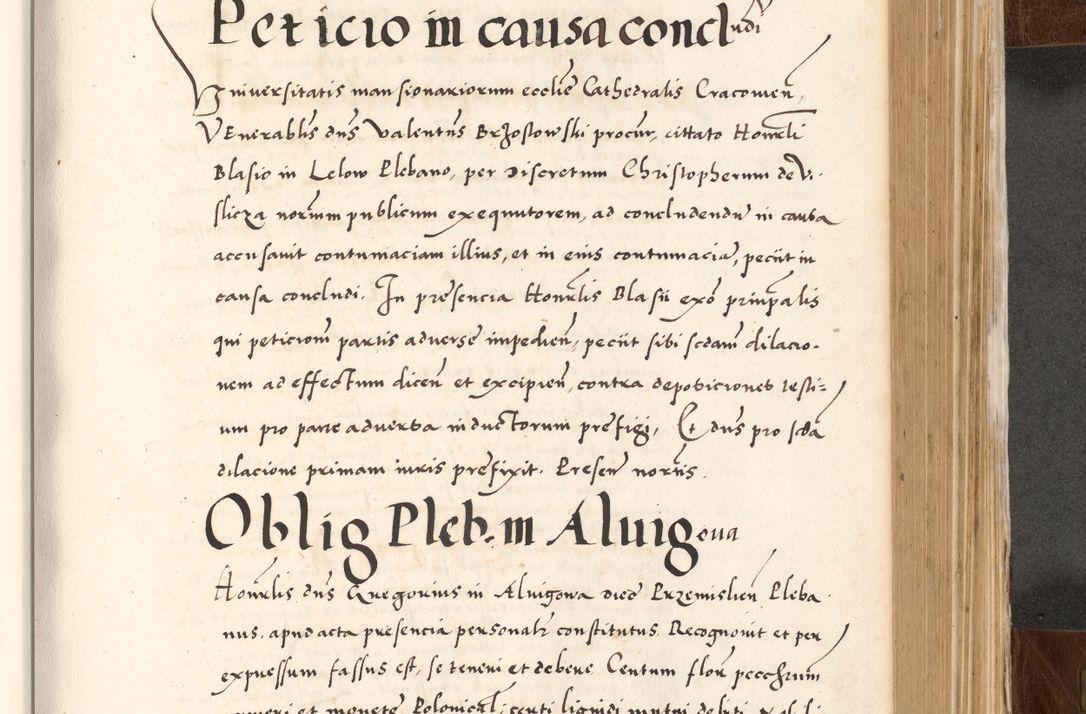 Peticio in causa concludi
Vniuersitatis mansionariorum ecclie Cathedralis Cracouien,
Venerablis dns Valentns Brzostowski procur, cittato Honrli
Blasio in Lelow Plebano, per Discretum Christopherum de Vi-
slicza norium publicum exequutorem, ad concludendu in causa
accusauit contumaciam illius, et in eius contumacia, peciit in
causa concludi. In presencia Honrlis Blasii exo prinpalis
qui peticiom partis aduerse impedien, peciit sibi scdam dilacio-
nem ad effectum dicen et excipien, contra deposiciones testi=
um pro parte aduersa inductorum prefigi, Et dns pro scda
dilacione primam iuris prefixit. Presen nortis.
Oblig Pleb. in Aluigoua
Honrlis dns Gregorius in Aluigowa dioc Przemislien Pleba-
nus, apud acta presencia personalr constitutus. Recognouit et per
expressum fassus est, se teneri et debere Centum flor pecchrum
numeri et monete Polonical, certi liquidi mutui debiti,